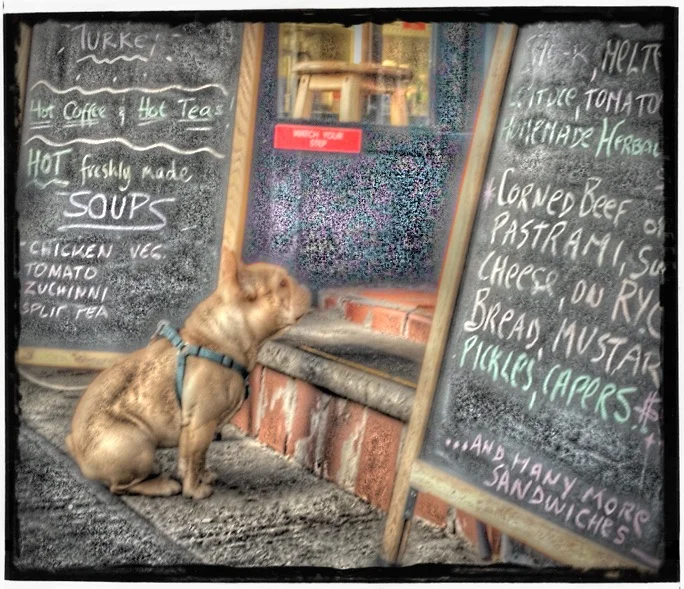 TURKEY
Hot Coffee & Hot Teas!
HOT freshly made
SOUPS
-CHICKEN VEG
TOMATO
ZUCHINNI
SPLIT PEA
WATCH YOUR
STEP
MELTE
TOMATO
HOMEMADE HERBAL
*CORNED BEEF
PASTRAMI,
CHEESE, ON RYE
BREAD, MUSTAR
PICKLES, CAPERS $
...AND MANY MORE
SANDWICHES